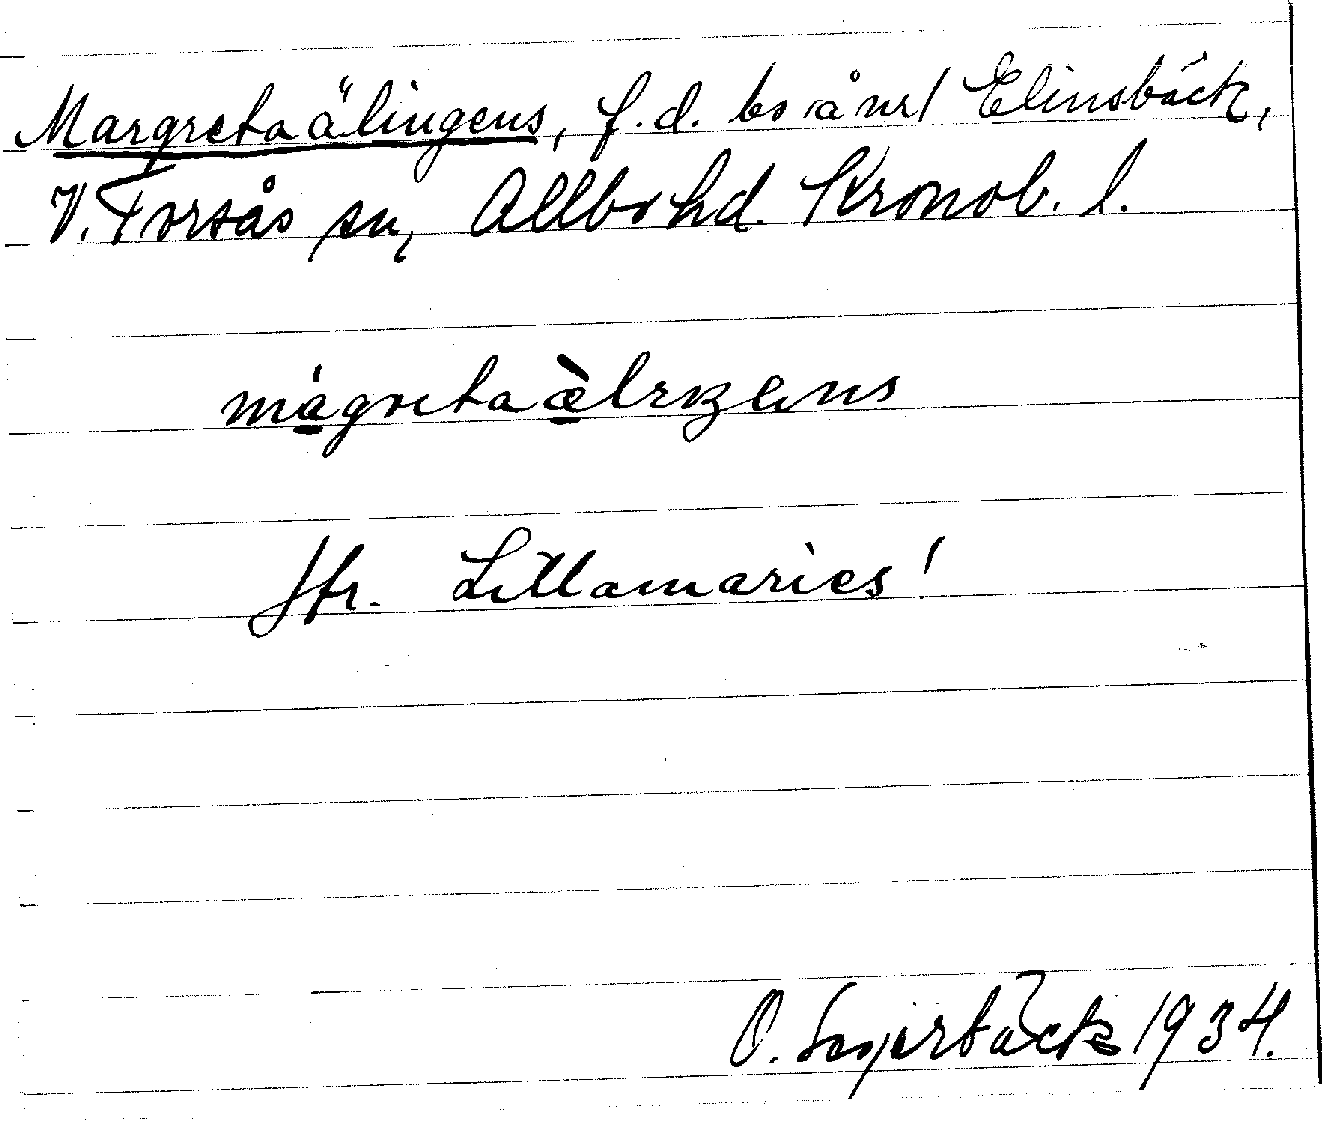 Margretaälingens, f.d. bo å nr 1 Elinsbäck,
V. Torsås sn, Allbo hd. Kronob. l.
mágretaæ̀lıŋens
Jfr. Lillamaries!
O. Sagerbäck 1934.